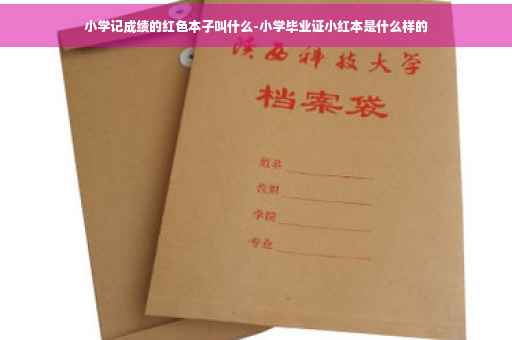 小学记成绩的红色本子叫什么-小学毕业证小红本是什么样的
陕西科技大学
档案袋
姓名
学院
专业